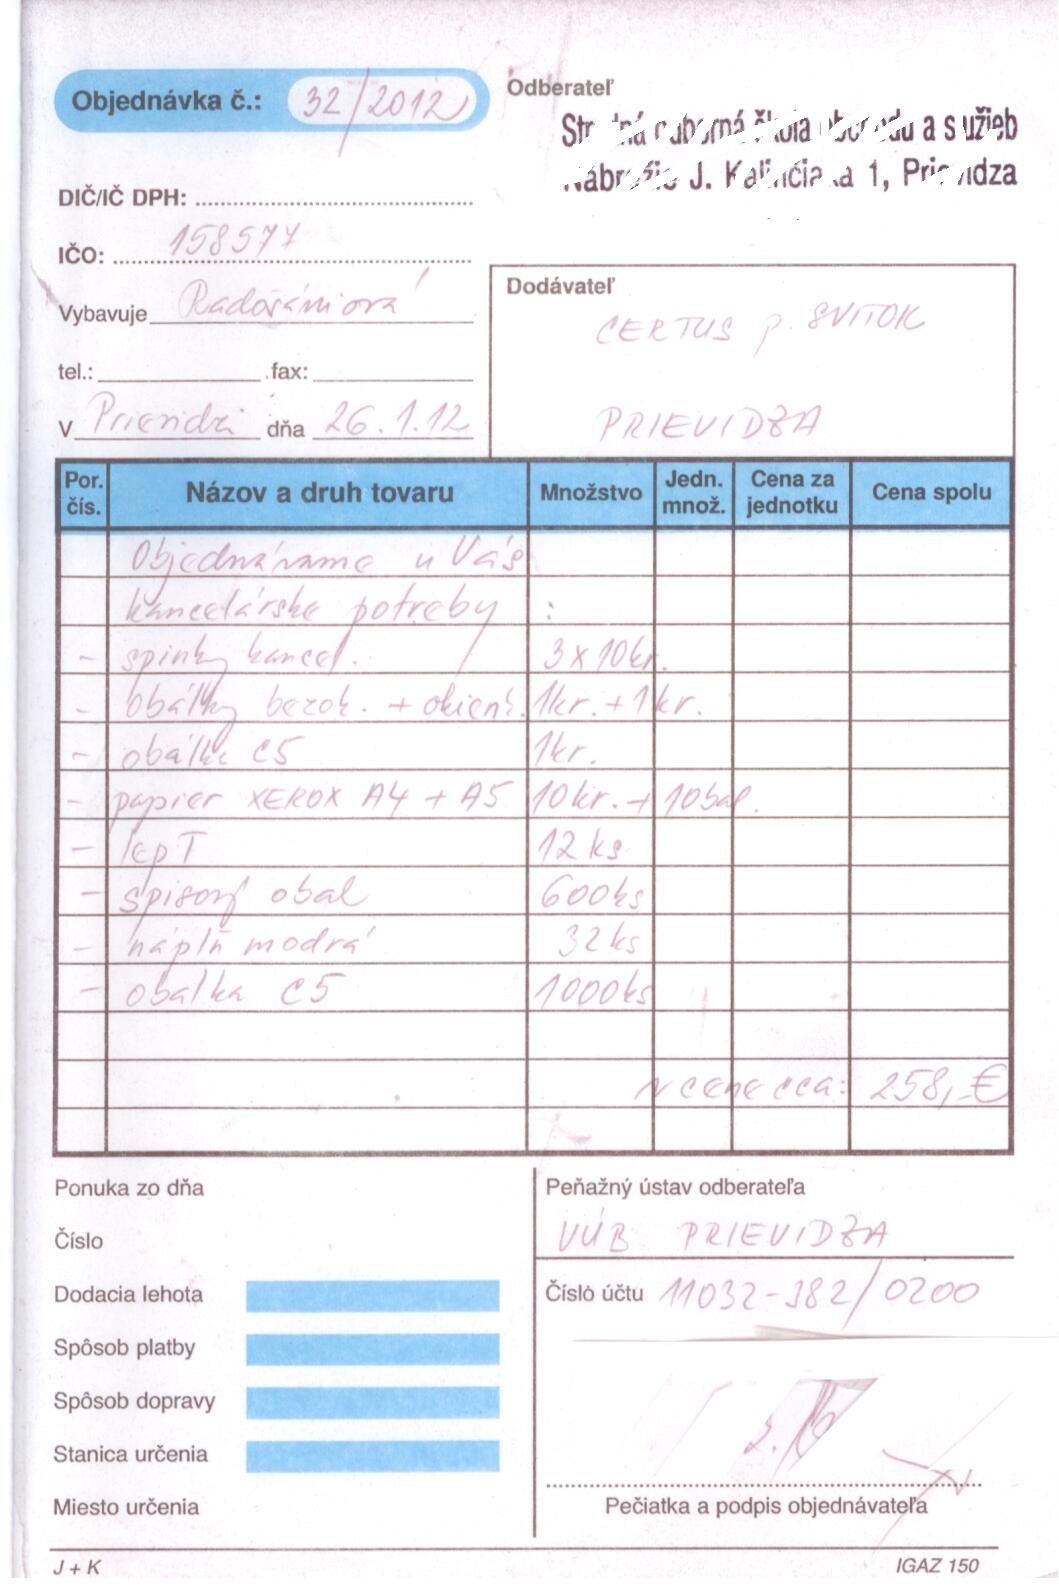 Objednávka č.: 32/2012
Odberateľ
Stredná odborná škola obchodu a služieb
Nábrežie J. Kalinčiaka 1, Prievidza
DIČ/IČ DPH:
IČO: 158577
Vybavuje
tel.: fax:
V Prievidzi dňa 26.1.12
Dodávateľ
CERTUS p. SVITOK
PRIEVIDZA
Por. čís. Názov a druh tovaru Množstvo Jedn. množ. Cena za jednotku Cena spolu
Objednávame u Vás
kancelárske potreby :
- spinky kancel. 3 x 10kr.
- obálky bezok. + okienk. 1kr. + 1kr.
- obálka C5 1kr.
- papier XEROX A4 + A5 10kr. + 10bal.
- lepT 12 ks
- spisový obal 600ks
- náplň modrá 32ks
- obalka C5 1000ks
v cene cca: 258,-€
Ponuka zo dňa
Číslo
Dodacia lehota
Spôsob platby
Spôsob dopravy
Stanica určenia
Miesto určenia
Peňažný ústav odberateľa
VÚB PRIEVIDZA
Číslo účtu 11032-382/0200
Pečiatka a podpis objednávateľa
J + K
IGAZ 150